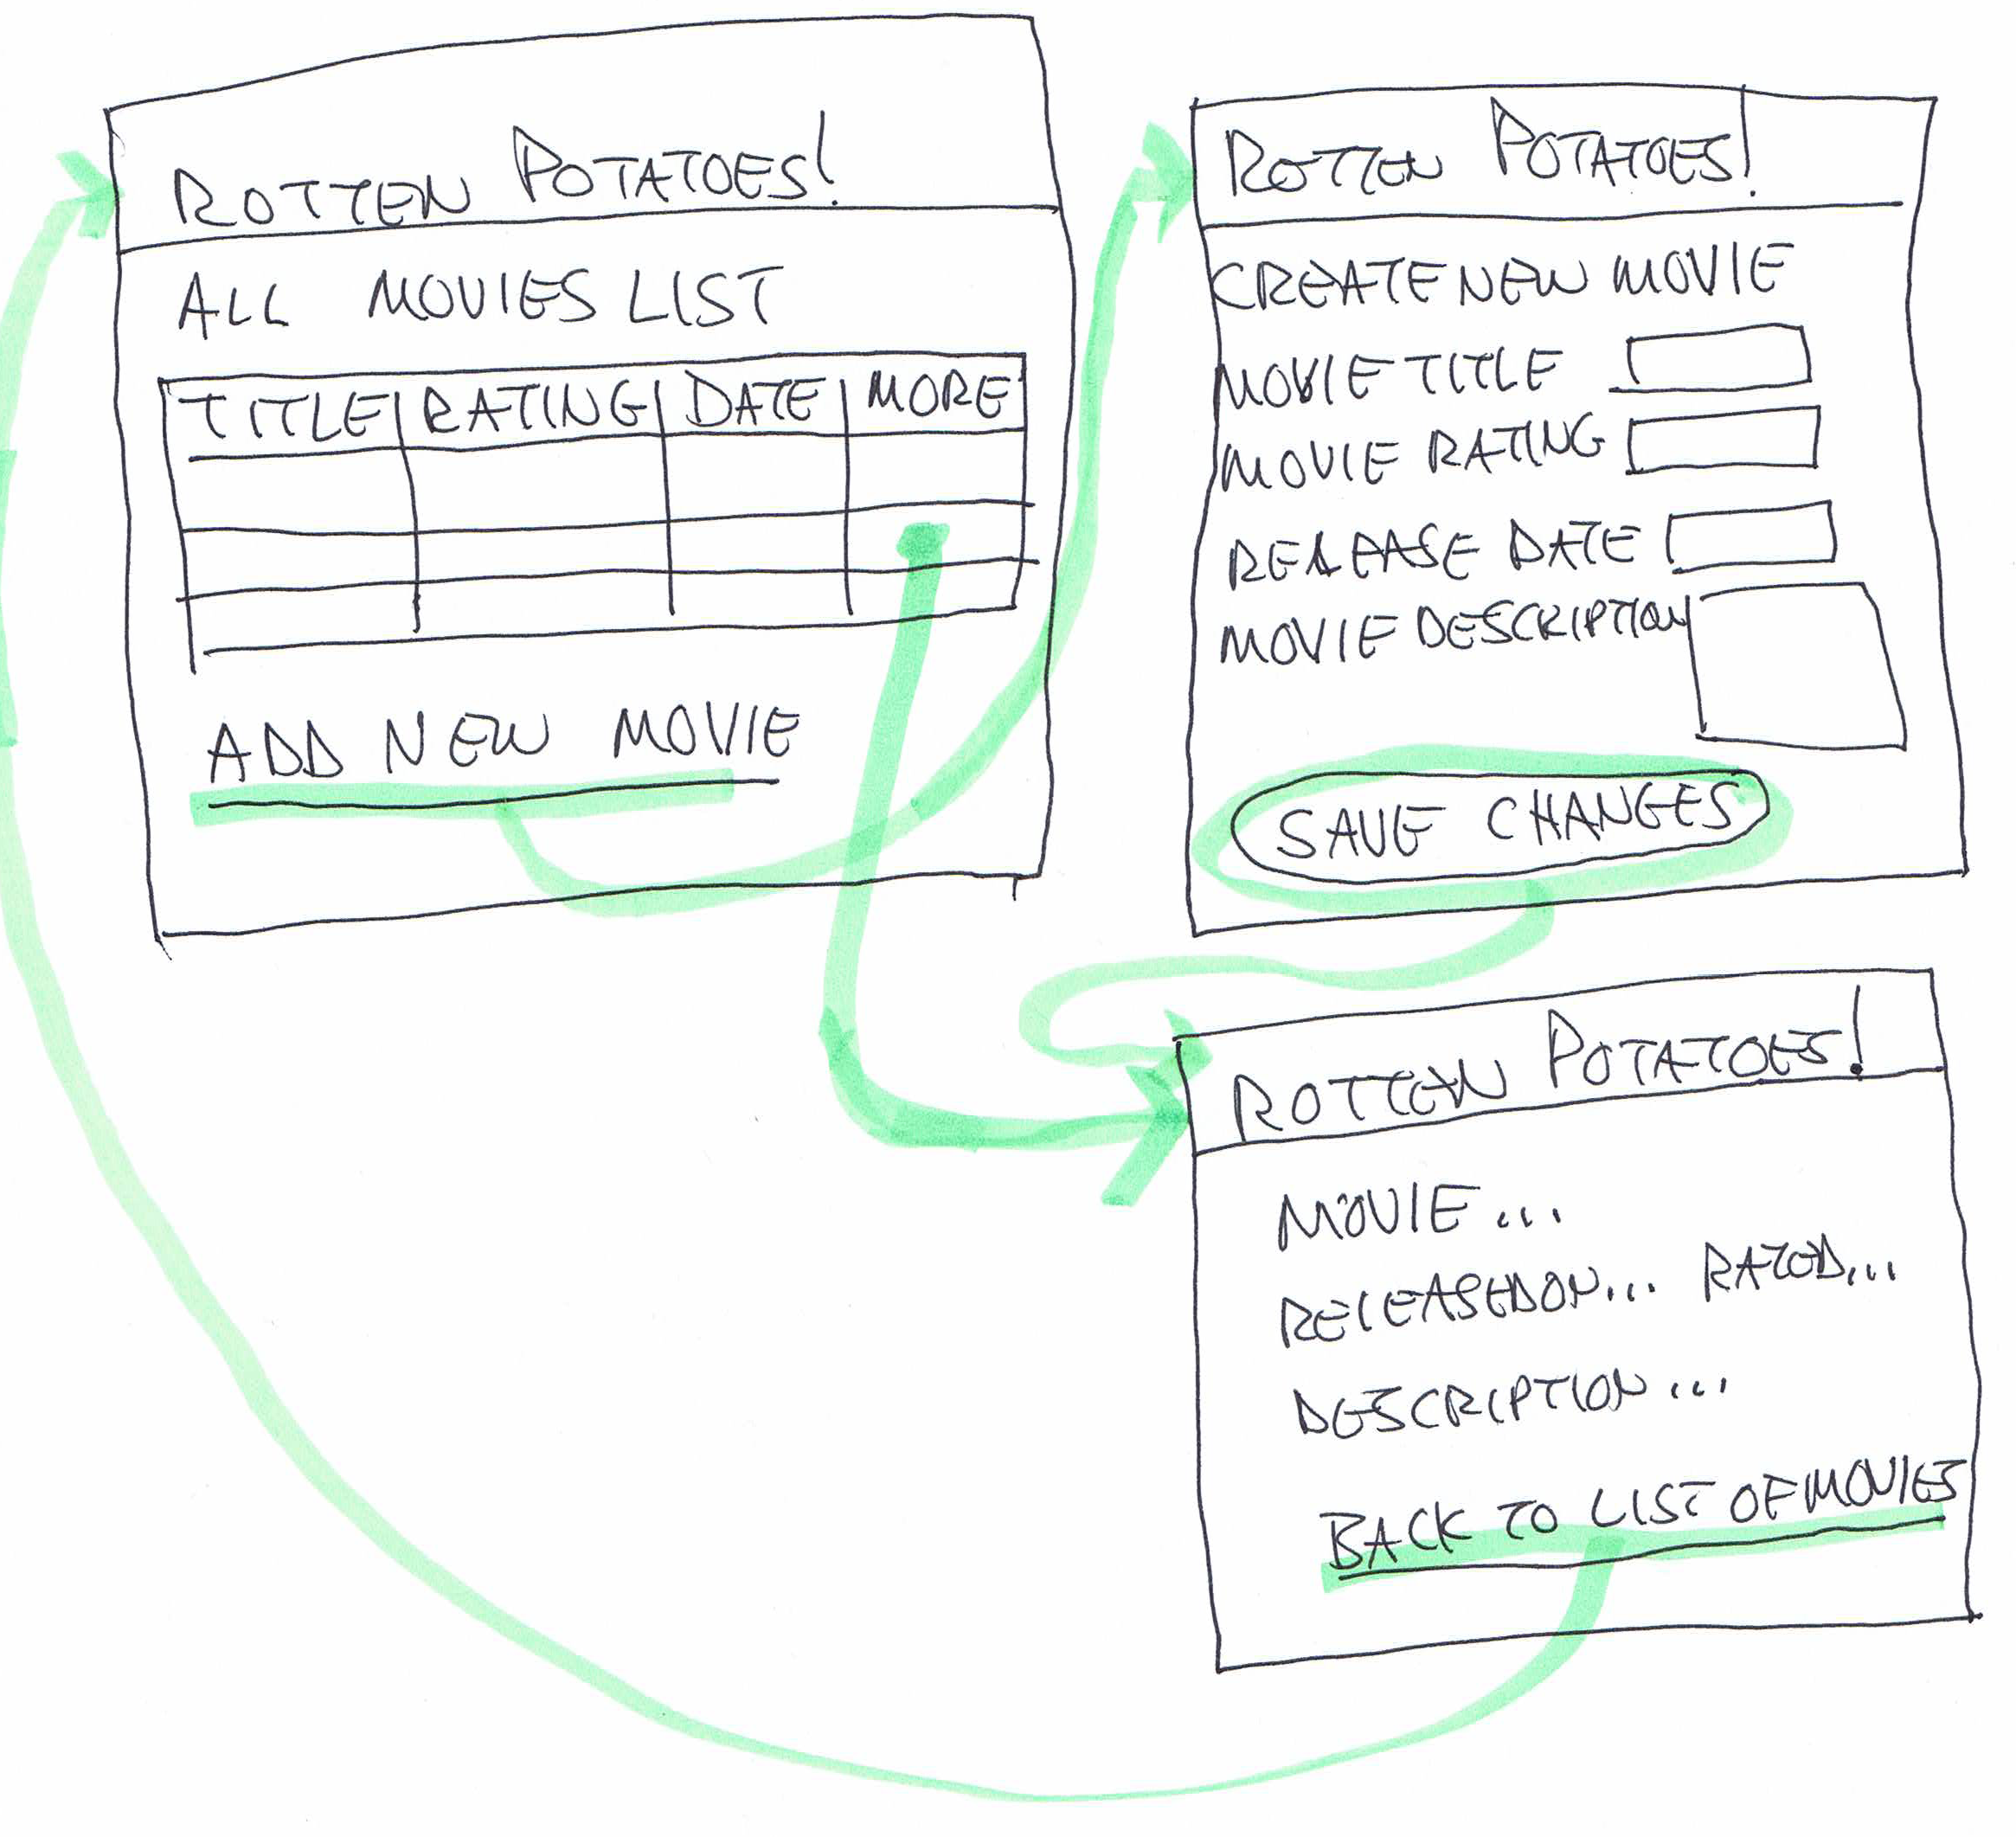 ROTTEN POTATOES!
ALL MOVIES LIST
TITLE RATING DATE MORE
ADD NEW MOVIE
ROTTEN POTATOES!
CREATE NEW MOVIE
MOVIE TITLE
MOVIE RATING
RELEASE DATE
MOVIE DESCRIPTION
SAVE CHANGES
ROTTEN POTATOES!
MOVIE...
RELEASED ON... RATED...
DESCRIPTION...
BACK TO LIST OF MOVIES